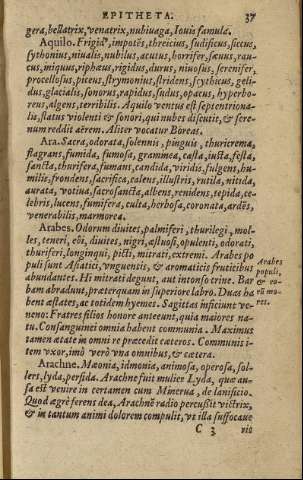 EPITHETA. 37
gera, bellatrix, venatrix, nubiuaga, Iouis famula.
Aquilo. Frigidᵒ, impotẽs, threicius, sudificus, siccus,
sythonius, niualis, nubilus, acutus, horrifer, sæuus, rau-
cus, niquus, riphæus, rigidus, durus, niuosus, serenifer,
procellosus, piceus, strymonius, stridens, scythicus, geli-
dus, glacialis, sonorus, rapidus, sudus, opacus, hyperbo-
reus, algens, terribilis. Aquilo ventus est septentriona-
lis, flatus violenti & sonori, qui nubes discutit, & sere-
num reddit aërem. Aliter vocatur Boreas.
Ara. Sacra, odorata, solennis, pinguis, thuricrema,
flagrans, fumida, fumosa, graminea, casta, iusta, festa,
sancta, thurifera, fumans, candida, viridis, fulgens, hu-
milis, frondens, sacrifica, calens, illustris, rutila, nitida,
aurata, votiua, sacrosancta, albens, renidens, tepida, ce-
lebris, lucens, fumifera, culta, herbosa, coronata, ardẽs,
venerabilis, marmorea.
Arabes. Odorum diuites, palmiferi, thurilegi, mol-
les, teneri, eoi, diuites, nigri, æstuosi, opulenti, odorati,
thuriferi, longinqui, picti, mitrati, extremi. Arabes po
puli sunt Asiatici, vnguentis, & aromaticis fruticibus
abundantes. Hi mitrati degunt, aut intonso crine. Bar
bam abradunt, præterquam in superiore labro. Duas ha
bent æstates, ac totidem hyemes. Sagittas inficiunt ve-
neno: Fratres filios honore anteeunt, quia maiores na-
tu. Consanguinei omnia habent communia. Maximus
tamen ætate in omni re præcedit cæteros. Communis i-
tem vxor, imò verò vna omnibus, & cætera.
Arabes
populi,
& eo-
rũ mo-
res.
Arachne. Mæonia, idmonia, animosa, operosa, sol-
lers, lyda, perfida. Arachne fuit mulier Lyda, quæ au-
sa est venire in certamen cum Minerua, de lanificio.
Quod ægrè ferens dea, Arachnẽ radio percußit victrix,
& in tantum animi dolorem compulit, vt illa suffocaue
C 3 rit